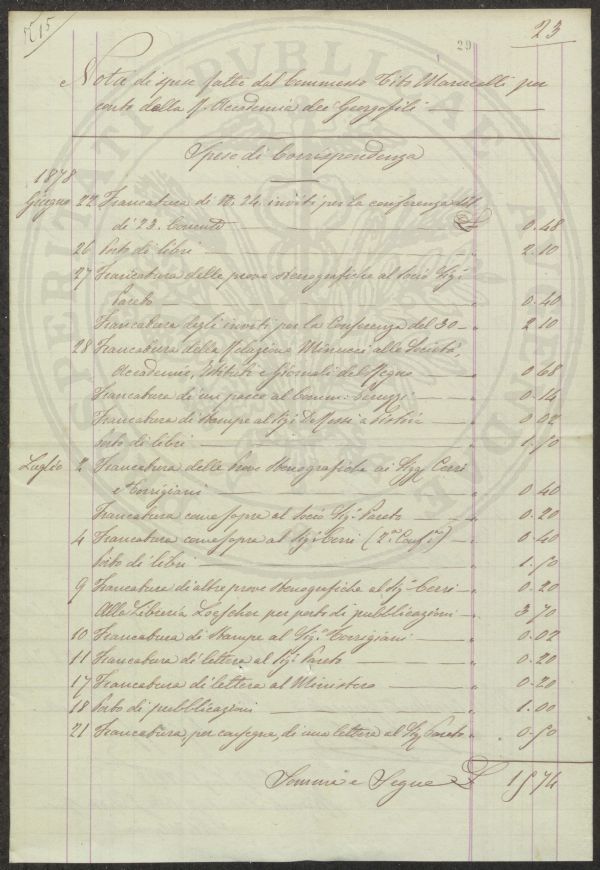 N 15
23
29
Nota di spese fatte dal Commesso Tito Marucelli per
conto della R. Accademia dei Georgofili
Spese di Corrispondenza
1878
Giugno 22 Francatura di N. 24 inviti per la conferenza del
dì 23. Corrente — £ 0.48
26 Porto di libri — " 2.10
27 Francatura delle prove stenografiche al Socio Sigr.
Pareto — " 0.40
Francatura degli inviti per la Conferenza del 30 — " 2.10
28 Francatura della Relazione Minucci alle Società,
Accademie, Istituti e Giornali del Regno — " 0.68
Francatura di un pacco al Comm: Peruzzi — " 0.14
Francatura di stampe al Sigr. De Rossi a Pistoia " 0.02
Porto di libri — " 1.50
Luglio 2 Francatura delle Prove Stenografiche ai Sigg. Cerri
e Torrigiani — " 0.40
Francatura come sopra al Socio Sigr. Pareto — " 0.20
4 Francatura come sopra al Sigr. Cerri (2.a Conf.e) — " 0.40
Porto di libri — " 1.50
9 Francatura di altre prove stenografiche al Sigr. Cerri — " 0.20
Alla Libreria Loescher per porto di pubblicazioni — " 3.70
10 Francatura di Stampe al Sigr. Torrigiani — " 0.02
11 Francatura di lettera al Sigr. Pareto — " 0.20
17 Francatura di lettera al Ministero — " 0.20
18 Porto di pubblicazioni — " 1.00
21 Francatura, per consegna, di una lettera al Sigr. Pareto " 0.50
Somma e Segue £ 15 74